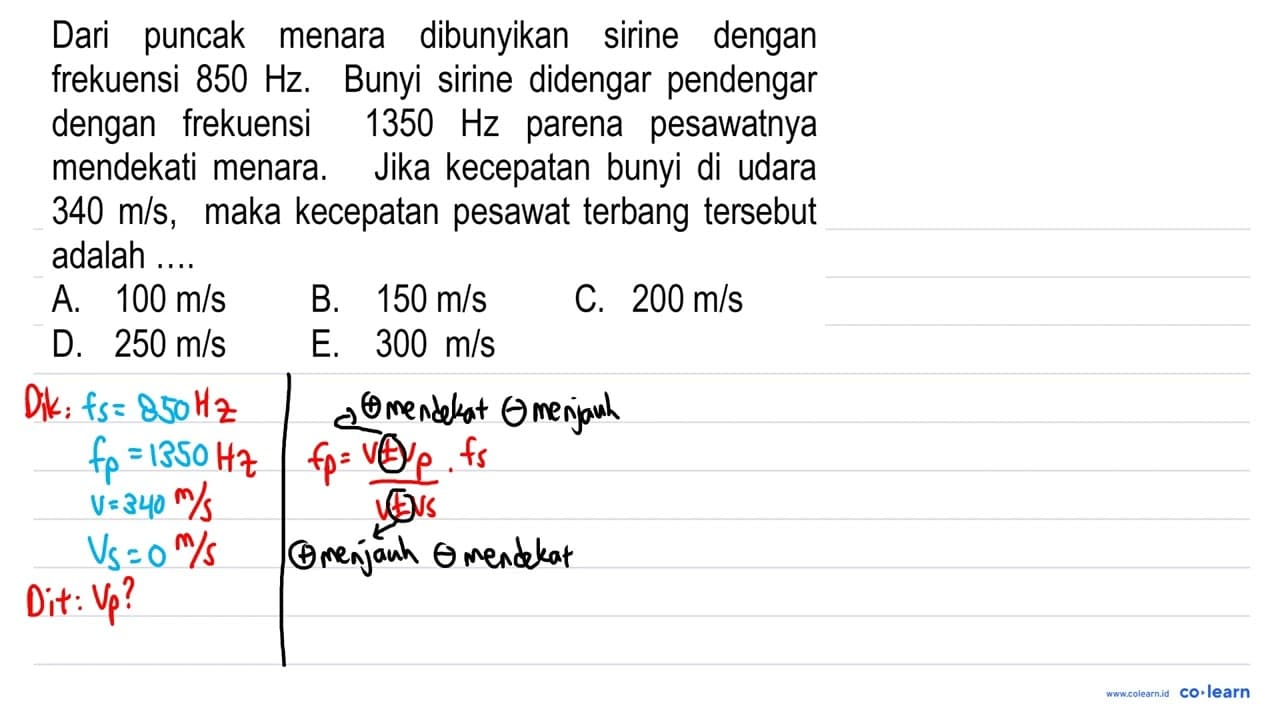 Dari puncak menara dibunyikan sirine dengan
frekuensi 850 Hz. Bunyi sirine didengar pendengar
dengan frekuensi 1350 Hz parena pesawatnya
mendekati menara. Jika kecepatan bunyi di udara
340 m/s, maka kecepatan pesawat terbang tersebut
adalah ....
A. 100 m/s B. 150 m/s C. 200 m/s
D. 250 m/s E. 300 m/s
Dik: fs = 850 Hz
fp = 1350 Hz
v = 340 m/s
Vs = 0 m/s
Dit: Vp?
⊕ mendekat ⊖ menjauh
fp = V ± Vp . fs
V ± Vs
⊕ menjauh ⊖ mendekat
www.colearn.id co·learn